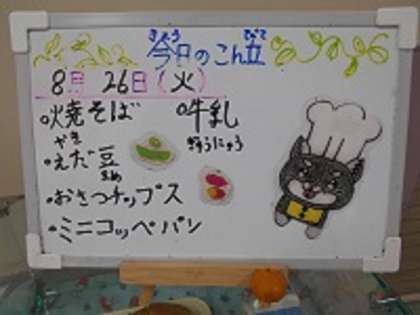 きょう こんだて
今日のこん立
8月 26日(火)
焼そば 牛乳
やき ぎゅうにゅう
えだ豆
まめ
おさつチップス
ミニコッペパン